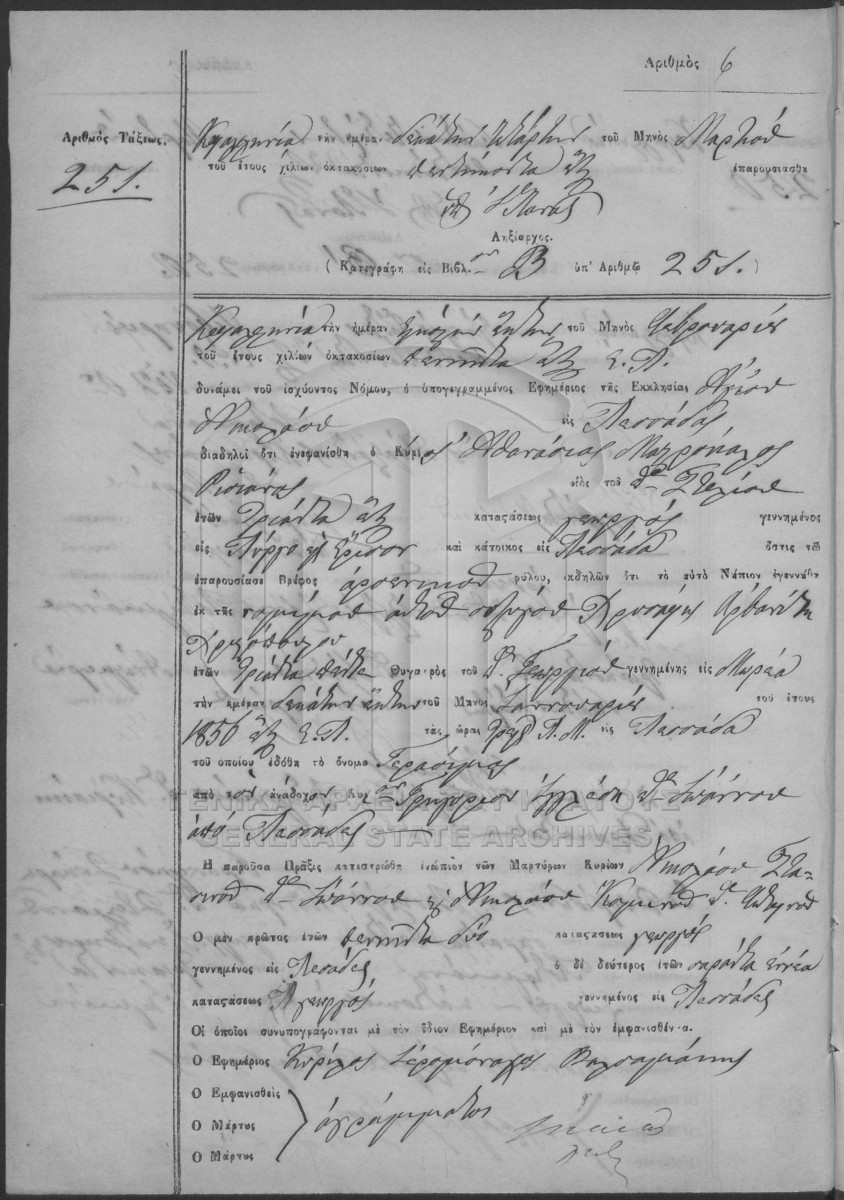 Αριθμὸς 6
Αριθμὸς Τάξεως.
251.
Κεφαλληνία τὴν ἡμέραν δεκάτην τετάρτην τοῦ Μηνὸς Μαρτίου
τοῦ ἔτους χιλίων ὀκτακοσίων πεντήκοντα ἓξ ἐπαρουσιασθη
Ληξίαρχος.
( Κατεγράφη εἰς Βιβλ. ον B ὑπ' Αριθμῷ 251. )
Κεφαλληνία τὴν ἡμέραν τοῦ Μηνὸς Φεβρουαρίου
τοῦ ἔτους χιλίων ὀκτακοσίων πεντήκοντα ἓξ Ε. Π.
δυνάμει τοῦ ἰσχύοντος Νόμου, ὁ ὑπογεγραμμένος Εφημέριος τῆς Εκκλησίας Ἁγίου
Νικολάου εἰς Πεσσάδας
διαδηλοῖ ὅτι ἐνεφανίσθη ὁ Κύριος Ἀθανάσιος
υἱὸς τοῦ Στελίου
ἐτῶν τριάντα ἓξ καταςάσεως γεωργὸς γεννημένος
εἰς Πύργο εἰς Ἔρισον καὶ κάτοικος εἰς Πεσσάδα ὅστις τῷ
ἐπαρουσίασε Βρέφος ἀρσενικοῦ φύλου, ἐκδηλῶν ὅτι τὸ αὐτὸ Νήπιον ἐγεννήθη
ἐκ τῆς νομίμου αὐτοῦ συζύγου Χρυσάφης Ἀρβανίτη
ἐτῶν τριάντα πέντε Θυγατρὸς τοῦ Γεωργίου γεννημένης εἰς Μωρέα
τὴν ἡμέραν δεκάτην ἕκτην τοῦ Μηνὸς Ἰαννουαρίου τοῦ ἔτους
1856 ἓξ Ε. Π. τὰς ὥρας Π. Μ. εἰς Πεσσάδα
τοῦ ὁποίου ἐδόθη τὸ ὄνομα Γεράσιμος
ἀπὸ τὸν ἀνάδοχον Κυρ. ον Γρηγόριον Ἰωάννου
ἀπὸ Πεσσάδας
ΓΕΝΙΚΑ ΑΡΧΕΙΑ ΤΟΥ ΚΡΑΤΟΥΣ
GENERAL STATE ARCHIVES
Η παροῦσα Πρᾶξις κατιστρώθη ἐνώπιον τῶν Μαρτύρων Κυρίων Νικολάου
Ἰωάννου Νικολάου
Ο μὲν πρῶτος ἐτῶν πεννήντα δύο καταςάσεως γεωργὸς
γεννημένος εἰς Πεσάδες ὁ δὲ δεύτερος ἐτῶν σαράντα ἐννέα
καταςάσεως γεωργὸς γεννημένος εἰς Πεσσάδες
Οἱ ὁποῖοι συνυπογράφονται μὲ τὸν ἴδιον Εφημέριον καὶ μὲ τὸν ἐμφανισθέντα.
Ο Εφημέριος Κύριλος ἱερομόναχος Βαλσαμάκης
Ο Εμφανισθεὶς
Ο Μάρτυς ἀγράμματοι
Ο Μάρτυς